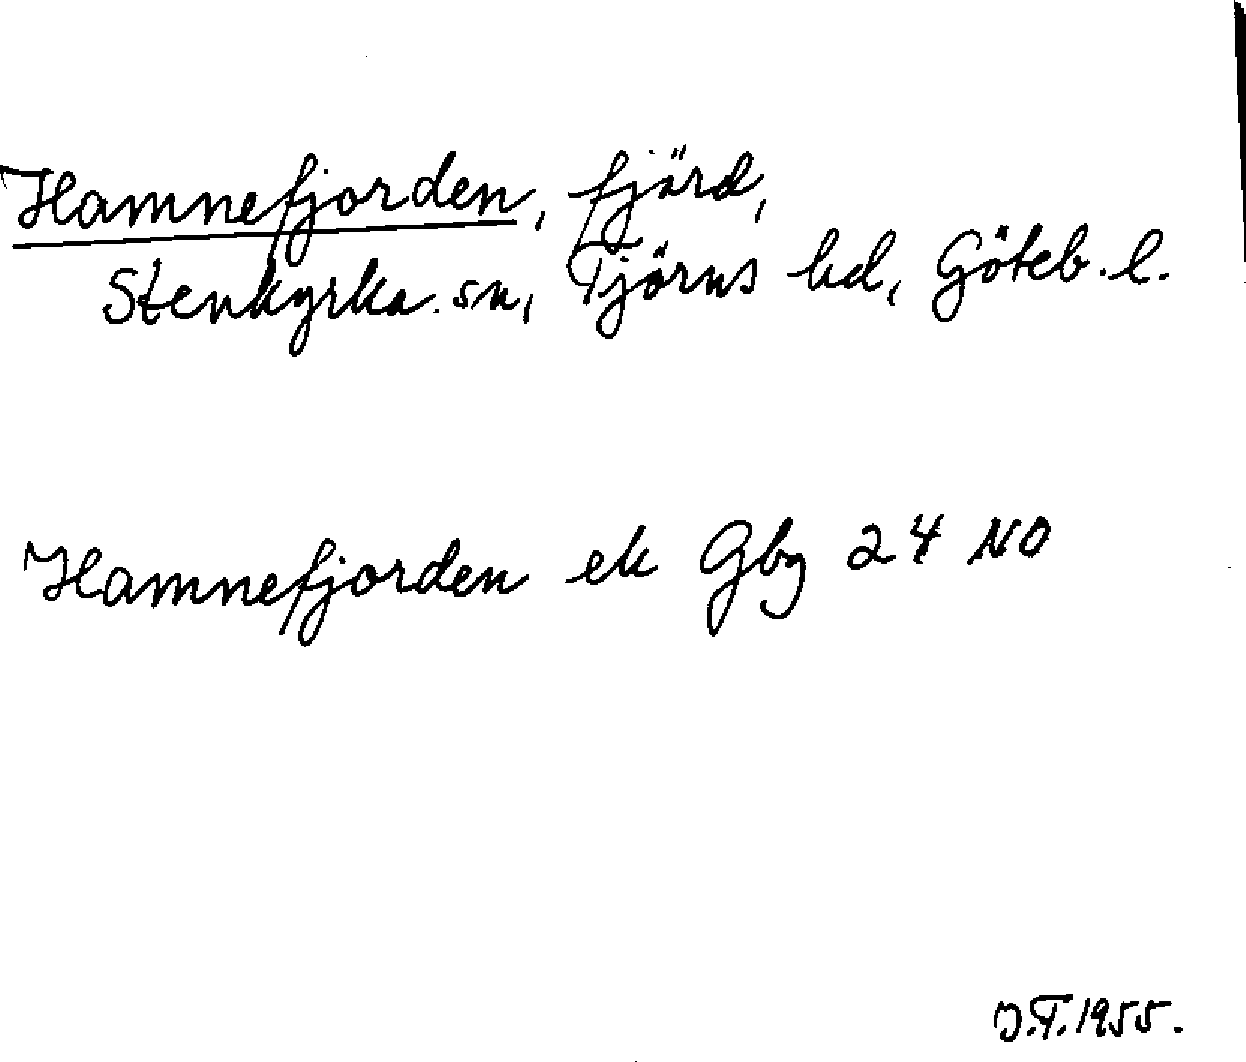 Hamnefjorden, fjärd,
Stenkyrka. sn, Tjörns hd, Göteb. l.
Hamnefjorden ek Gbg 24 NO
J.T. 1955.